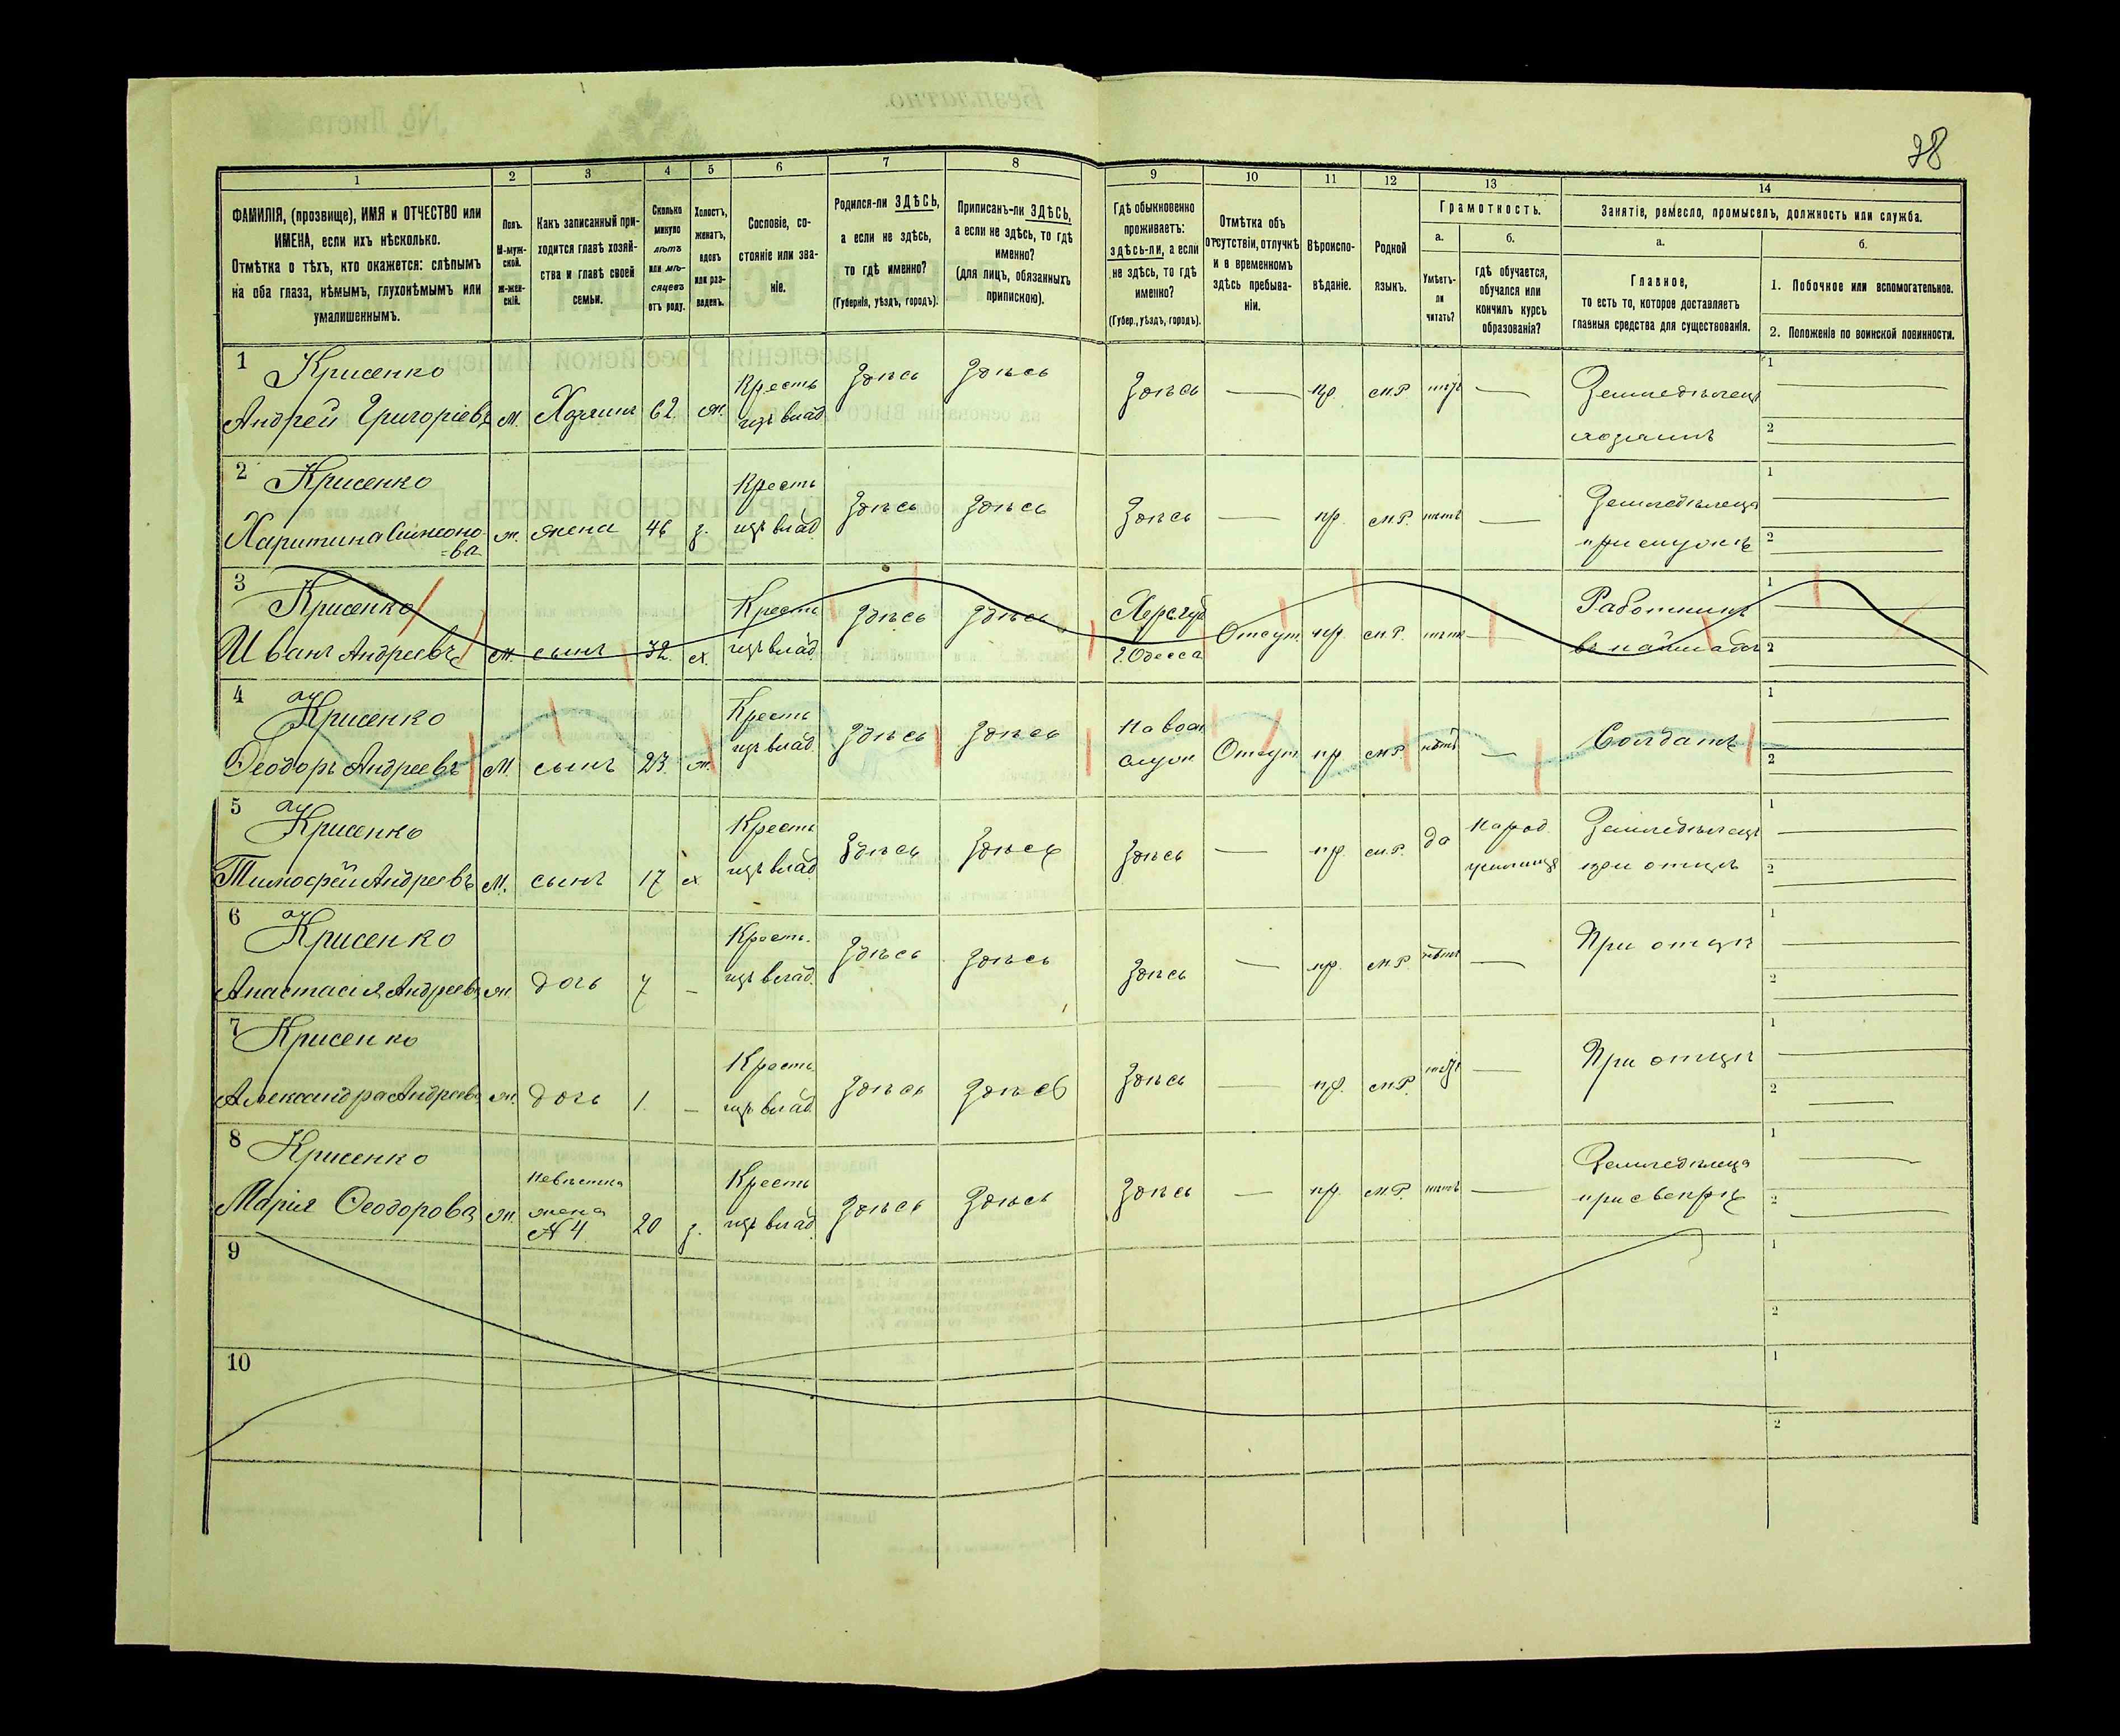 38
1 2 3 4 5 6 7 8 9 10 11 12 13 14
ФАМИЛІЯ, (прозвище), ИМЯ и ОТЧЕСТВО или
ИМЕНА, если ихъ нѣсколько.
Отмѣтка о тѣхъ, кто окажется: слѣпымъ
на оба глаза, нѣмымъ, глухонѣмымъ или
умалишеннымъ.
Полъ.
М-муж-
ской.
Ж-жен-
скій.
Какъ записанный при-
ходится главѣ хозяй-
ства и главѣ своей
семьи.
Сколько
минуло
лѣтъ
или мѣ-
сяцевъ
отъ роду.
Холостъ,
женатъ,
вдовъ
или раз-
веденъ.
Сословіе, со-
стояніе или зва-
ніе.
Родился-ли ЗДѢСЬ,
а если не здѣсь,
то гдѣ именно?
(Губернія, уѣздъ, городъ).
Приписанъ-ли ЗДѢСЬ,
а если не здѣсь, то гдѣ
именно?
(для лицъ, обязанныхъ
припискою).
Гдѣ обыкновенно
проживаетъ:
здѣсь-ли, а если
не здѣсь, то гдѣ
именно?
(Губер., уѣздъ, городъ).
Отмѣтка объ
отсутствіи, отлучкѣ
и о временномъ
здѣсь пребыва-
ніи.
Вѣроиспо-
вѣданіе.
Родной
языкъ.
Грамотность.
а.
Умѣетъ-
ли
читать?
б.
гдѣ обучается,
обучался или
кончилъ курсъ
образованія?
Занятіе, ремесло, промыселъ, должность или служба.
а.
Главное,
то есть то, которое доставляетъ
главныя средства для существованія.
б.
1. Побочное или вспомогательное.
2. Положеніе по воинской повинности.
1 Крисенко Кресть Здѣсь Здѣсь Здѣсь — пр. м.р. нѣтъ — Земледѣлецъ 1
Андрей Григорьевъ М. Хозяинъ 62 ж. изъ влад. хозяинъ 2
2 Крисенко Кресть Здѣсь Здѣсь Здѣсь — пр. м.р. нѣтъ — Земледѣлеца 1
Харитина Симионо ж. жена 46 з. изъ влад. при мужѣ 2
=ва
3 Крисенко Кресть Здѣсь Здѣсь Хер. губ Отсут. пр. м.р. нѣтъ — Работникъ 1
Иванъ Андреевъ М. сынъ 32 х. изъ влад. г. Одесса 2
4 Крисенко Кресть Здѣсь Здѣсь На воен Отсут пр м.р. нѣтъ — Солдатъ 1
Ѳеодоръ Андреевъ М. сынъ 23. ж. изъ влад. служ 2
5 Крисенко Кресть Здѣсь Здѣсь Здѣсь — пр. м.р. да Народ. Земледѣлецъ 1
Тимофей Андреевъ М. сынъ 17 х изъ влад. училище при отцѣ 2
6 Крисенко Кресть. Здѣсь Здѣсь Здѣсь — пр. м.р. нѣтъ — При отцѣ 1
Анастасія Андреева ж. дочь 7 — изъ влад. 2
7 Крисенко Кресть. Здѣсь Здѣсь Здѣсь — пр. м.р. нѣтъ — При отцѣ 1
Александра Андреева ж. дочь 1. — изъ влад. 2
8 Крисенко Невѣстка Кресть Здѣсь Здѣсь Здѣсь — пр. м.р. нѣтъ — Земледѣлеца 1
Марія Ѳеодорова ж. жена 20 з. изъ влад. при свекрѣ 2
N 4
9 1
2
10 1
2